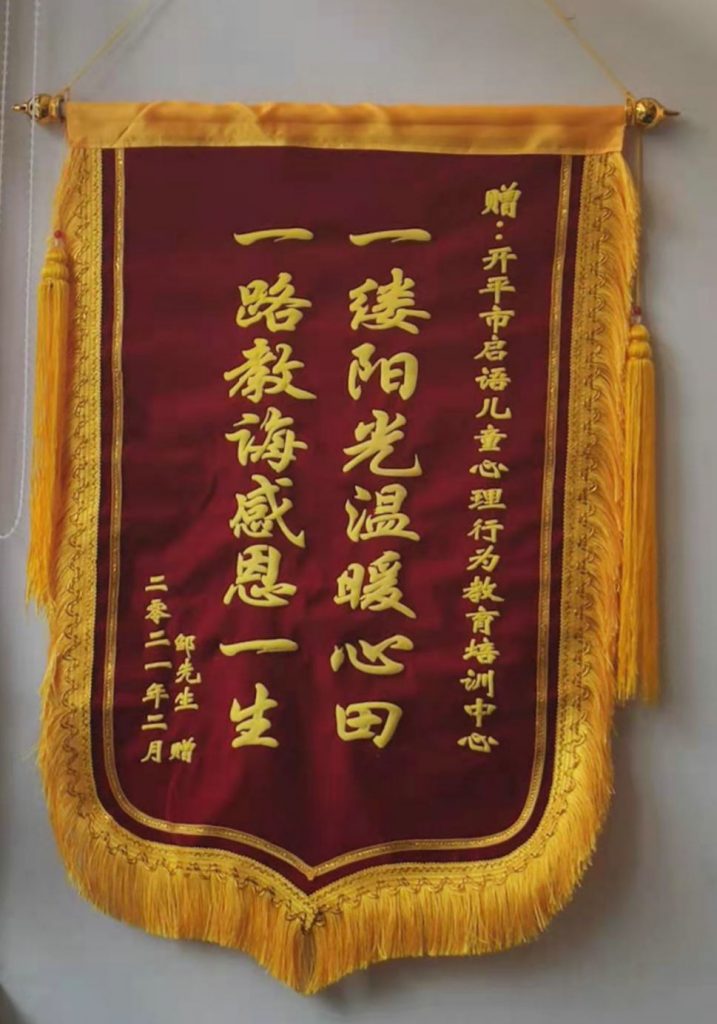 赠：开平市启语儿童心理行为教育培训中心
一缕阳光温暖心田
一路教诲感恩一生
邹先生 赠
二零二一年二月